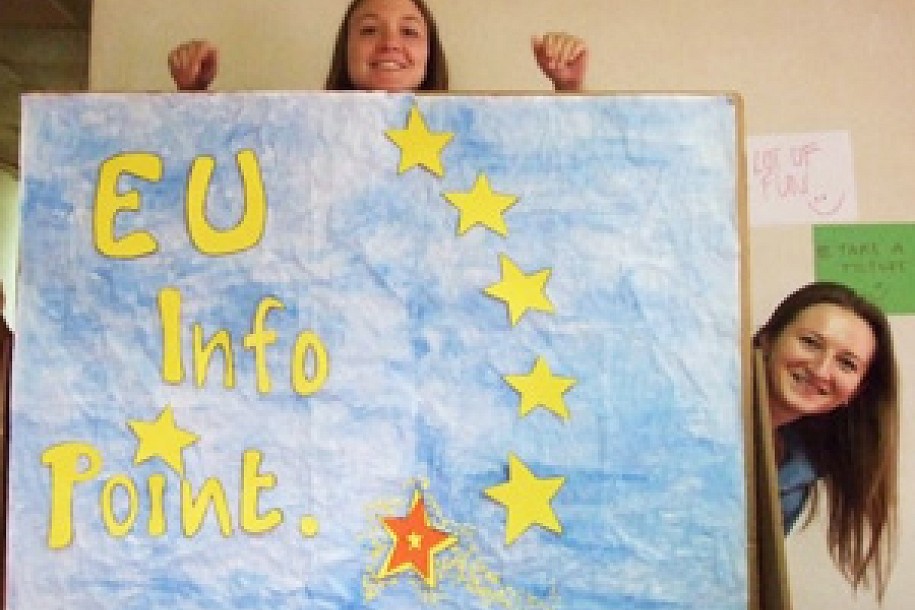 EU
Info
Point.
LOT OF
FUN
TAKE A